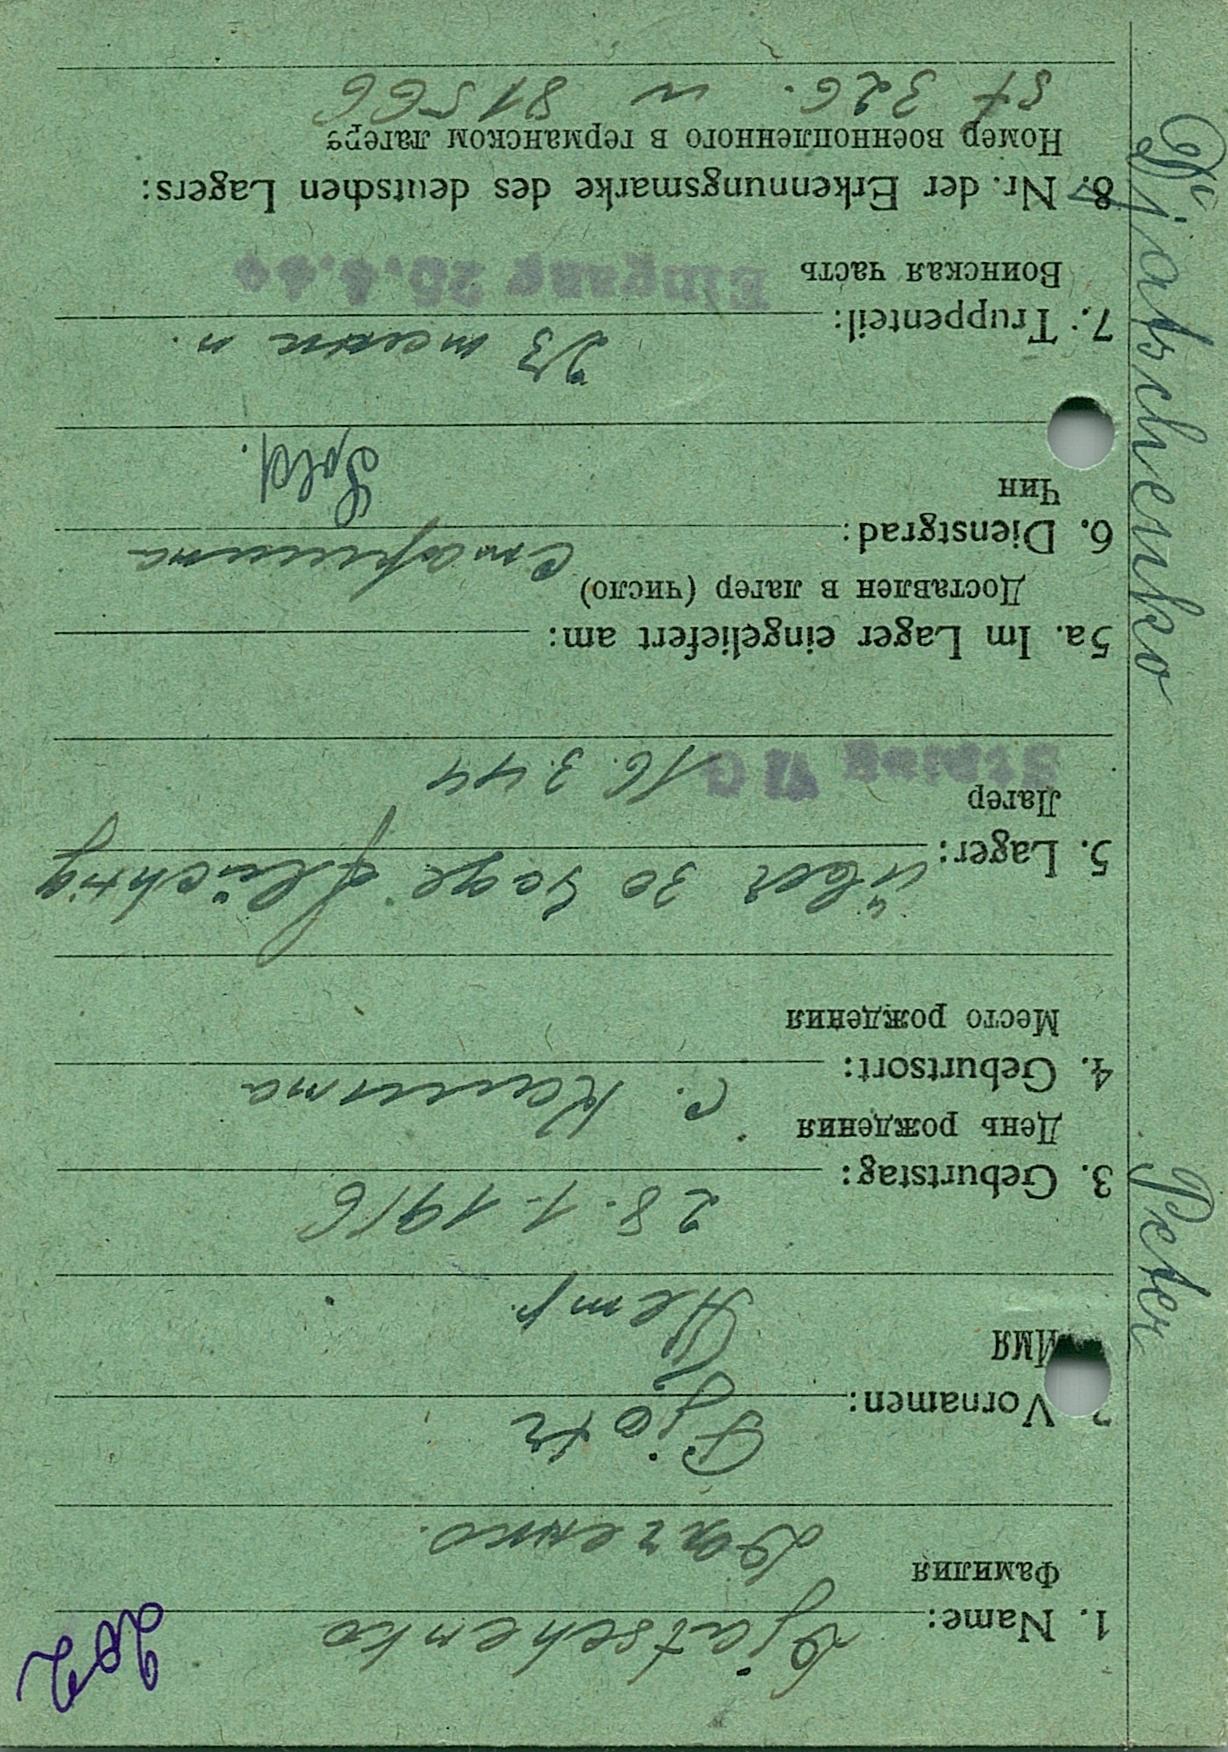 202
1. Name: Djatschenko
Фамилия
Дяченко.
2. Vornamen: Pjotr
Имя
Петр.
3. Geburtstag: 28.1.1916
День рождения
4. Geburtsort: с.
Место рождения
über 30 Tage flüchtig
5. Lager:
Лагер
Stalag VI G 16.3.44
5a. Im Lager eingeliefert am:
Доставлен в лагер (число)
6. Dienstgrad: Старшина
Чин
Sold.
7. Truppenteil: 23 танк п.
Воинская часть
Eingang 25.4.44
8. Nr. der Erkennungsmarke des deutschen Lagers:
Номер военнопленного в германском лагере
St 326. N 81566
Peter Djatschenko